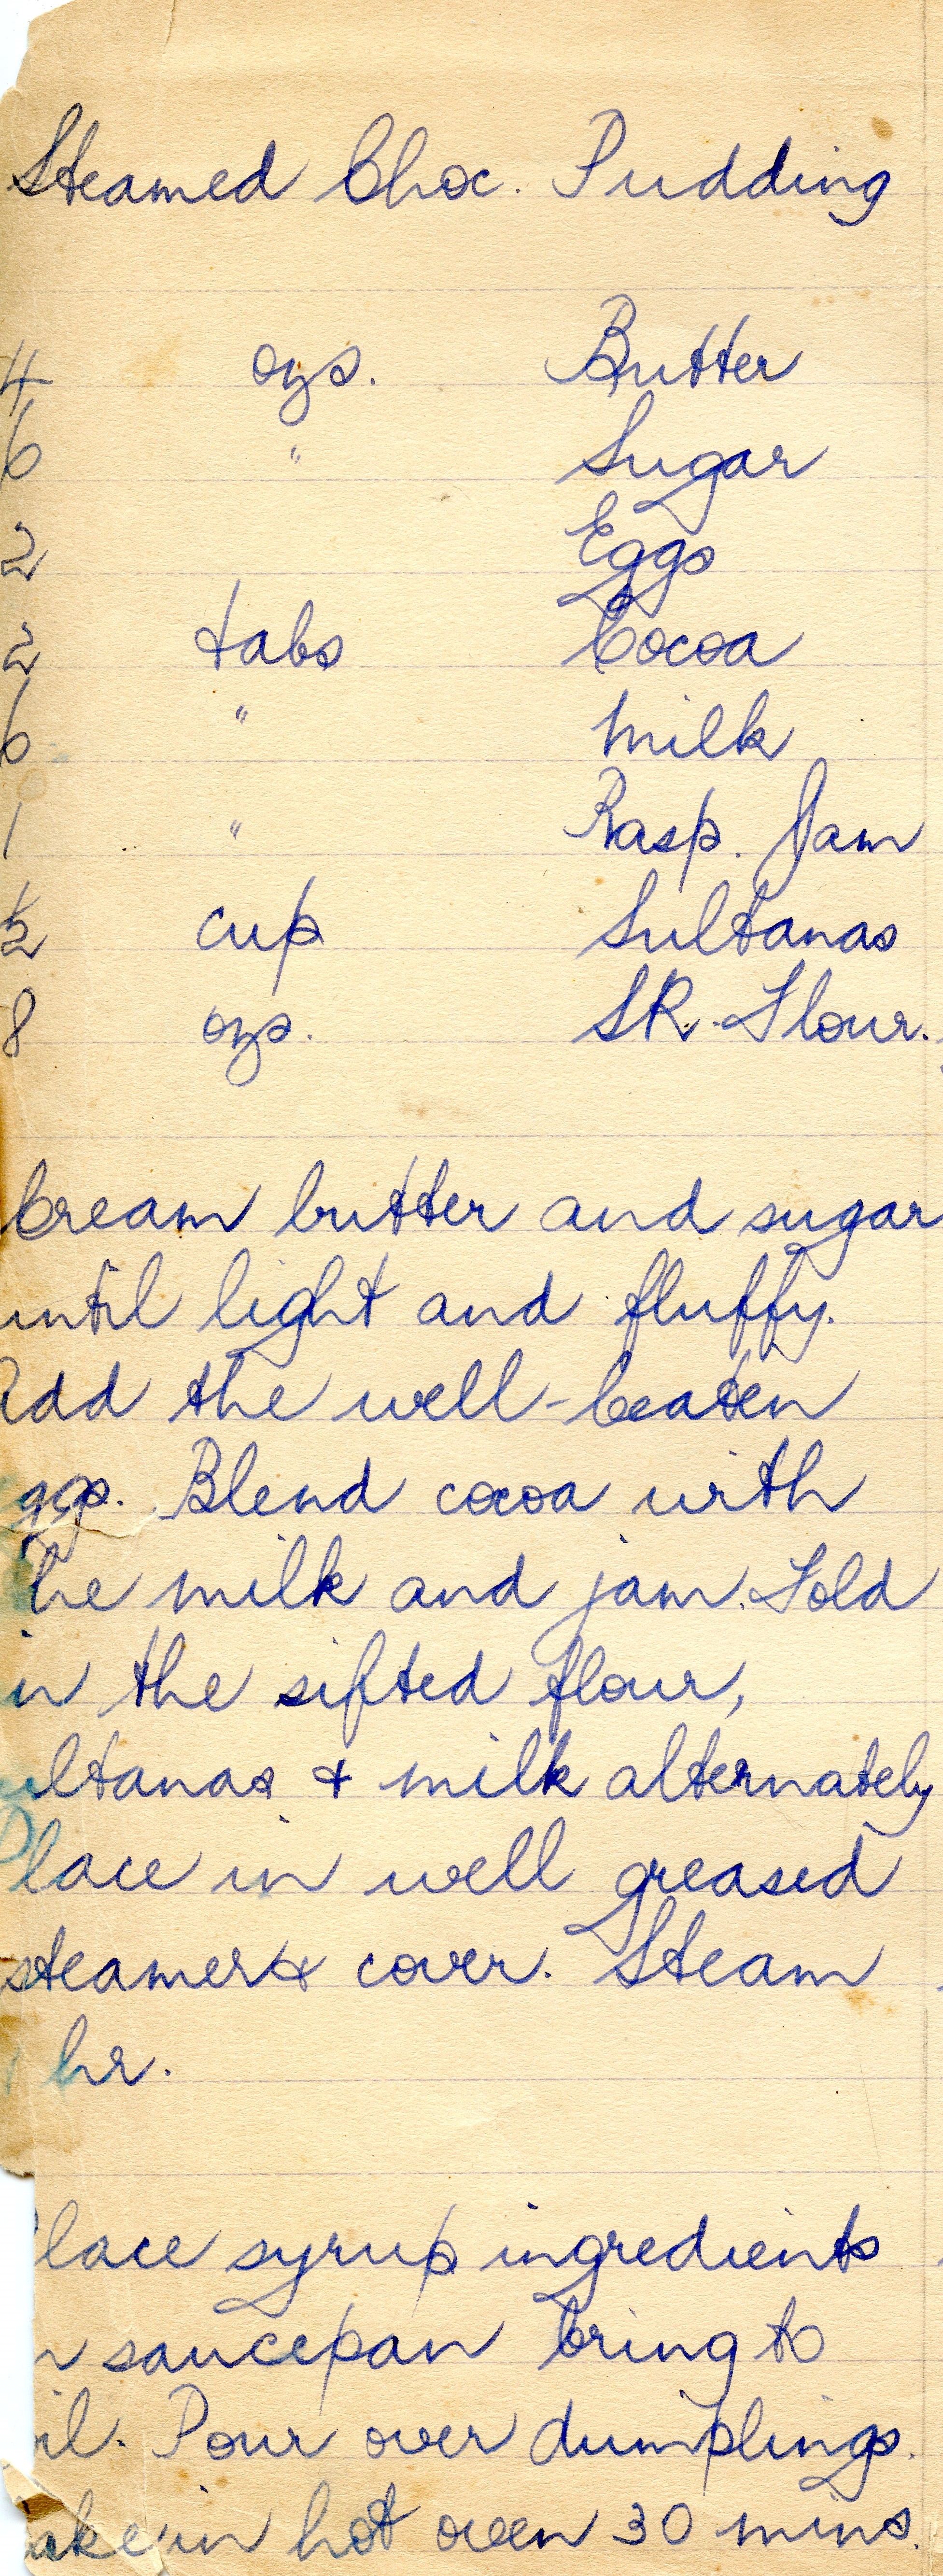 Steamed Choc. Pudding
4 ozs. Butter
6 " Sugar
2 Eggs
2 tabs Cocoa
6 " Milk
1 " Rasp. Jam
½ cup Sultanas
8 ozs. SR. Flour.
Cream butter and sugar
until light and fluffy.
add the well-beaten
ggs. Blend cocoa with
he milk and jam. Fold
in the sifted flour,
ultanas & milk alternately
Place in well greased
steamer & cover. Steam
hr.
lace syrup ingredients
n saucepan bring to
il. Pour over dumplings.
ake in hot oven 30 mins.